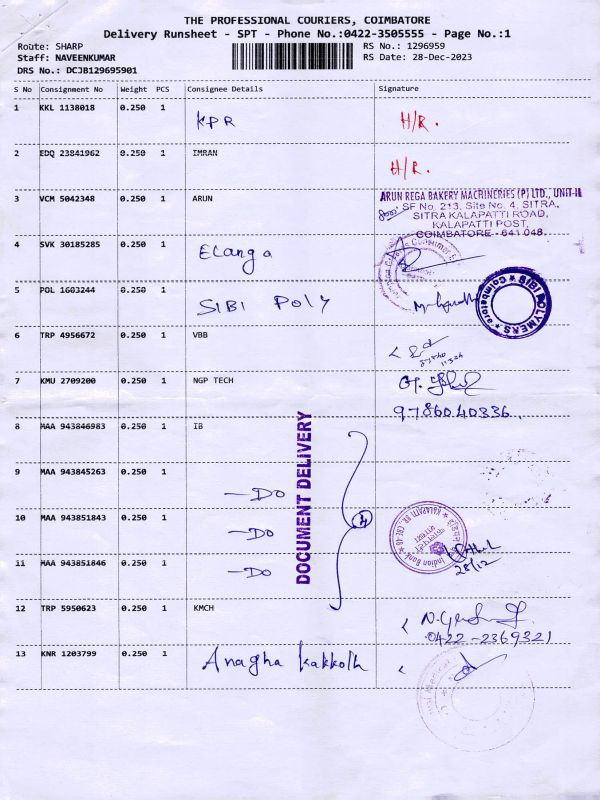 THE PROFESSIONAL COURIERS, COIMBATORE
Delivery Runsheet - SPT - Phone No.:0422-3505555 - Page No.:1
Route: SHARP RS No.: 1296959
Staff: NAVEENKUMAR RS Date: 28-Dec-2023
DRS No.: DCJB129695901
S No Consignment No Weight PCS Consignee Details Signature
1 KKL 1138018 0.250 1 KPR H/R.
2 EDQ 23841962 0.250 1 IMRAN H/R.
3 VCM 5042348 0.250 1 ARUN
ARUN REGA BAKERY MACHINERIES (P) LTD., UNIT-II
SF No. 213, Site No. 4, SITRA,
SITRA KALAPATTI ROAD,
KALAPATTI POST,
COIMBATORE - 641 048.
4 SVK 30185285 0.250 1 Elango
5 POL 1603244 0.250 1 SIBI POLY
SIBI POLYMERS * Coimbatore *
6 TRP 4956672 0.250 1 VBB
7 KMU 2709200 0.250 1 NGP TECH
9786040336
8 MAA 943846983 0.250 1 IB
DOCUMENT DELIVERY
9 MAA 943845263 0.250 1 -DO
10 MAA 943851843 0.250 1 -DO
4
Indian Bank
11 MAA 943851846 0.250 1 -DO
28/12
12 TRP 5950623 0.250 1 KMCH
0422-2369321
13 KNR 1203799 0.250 1 Anagha kakkoth